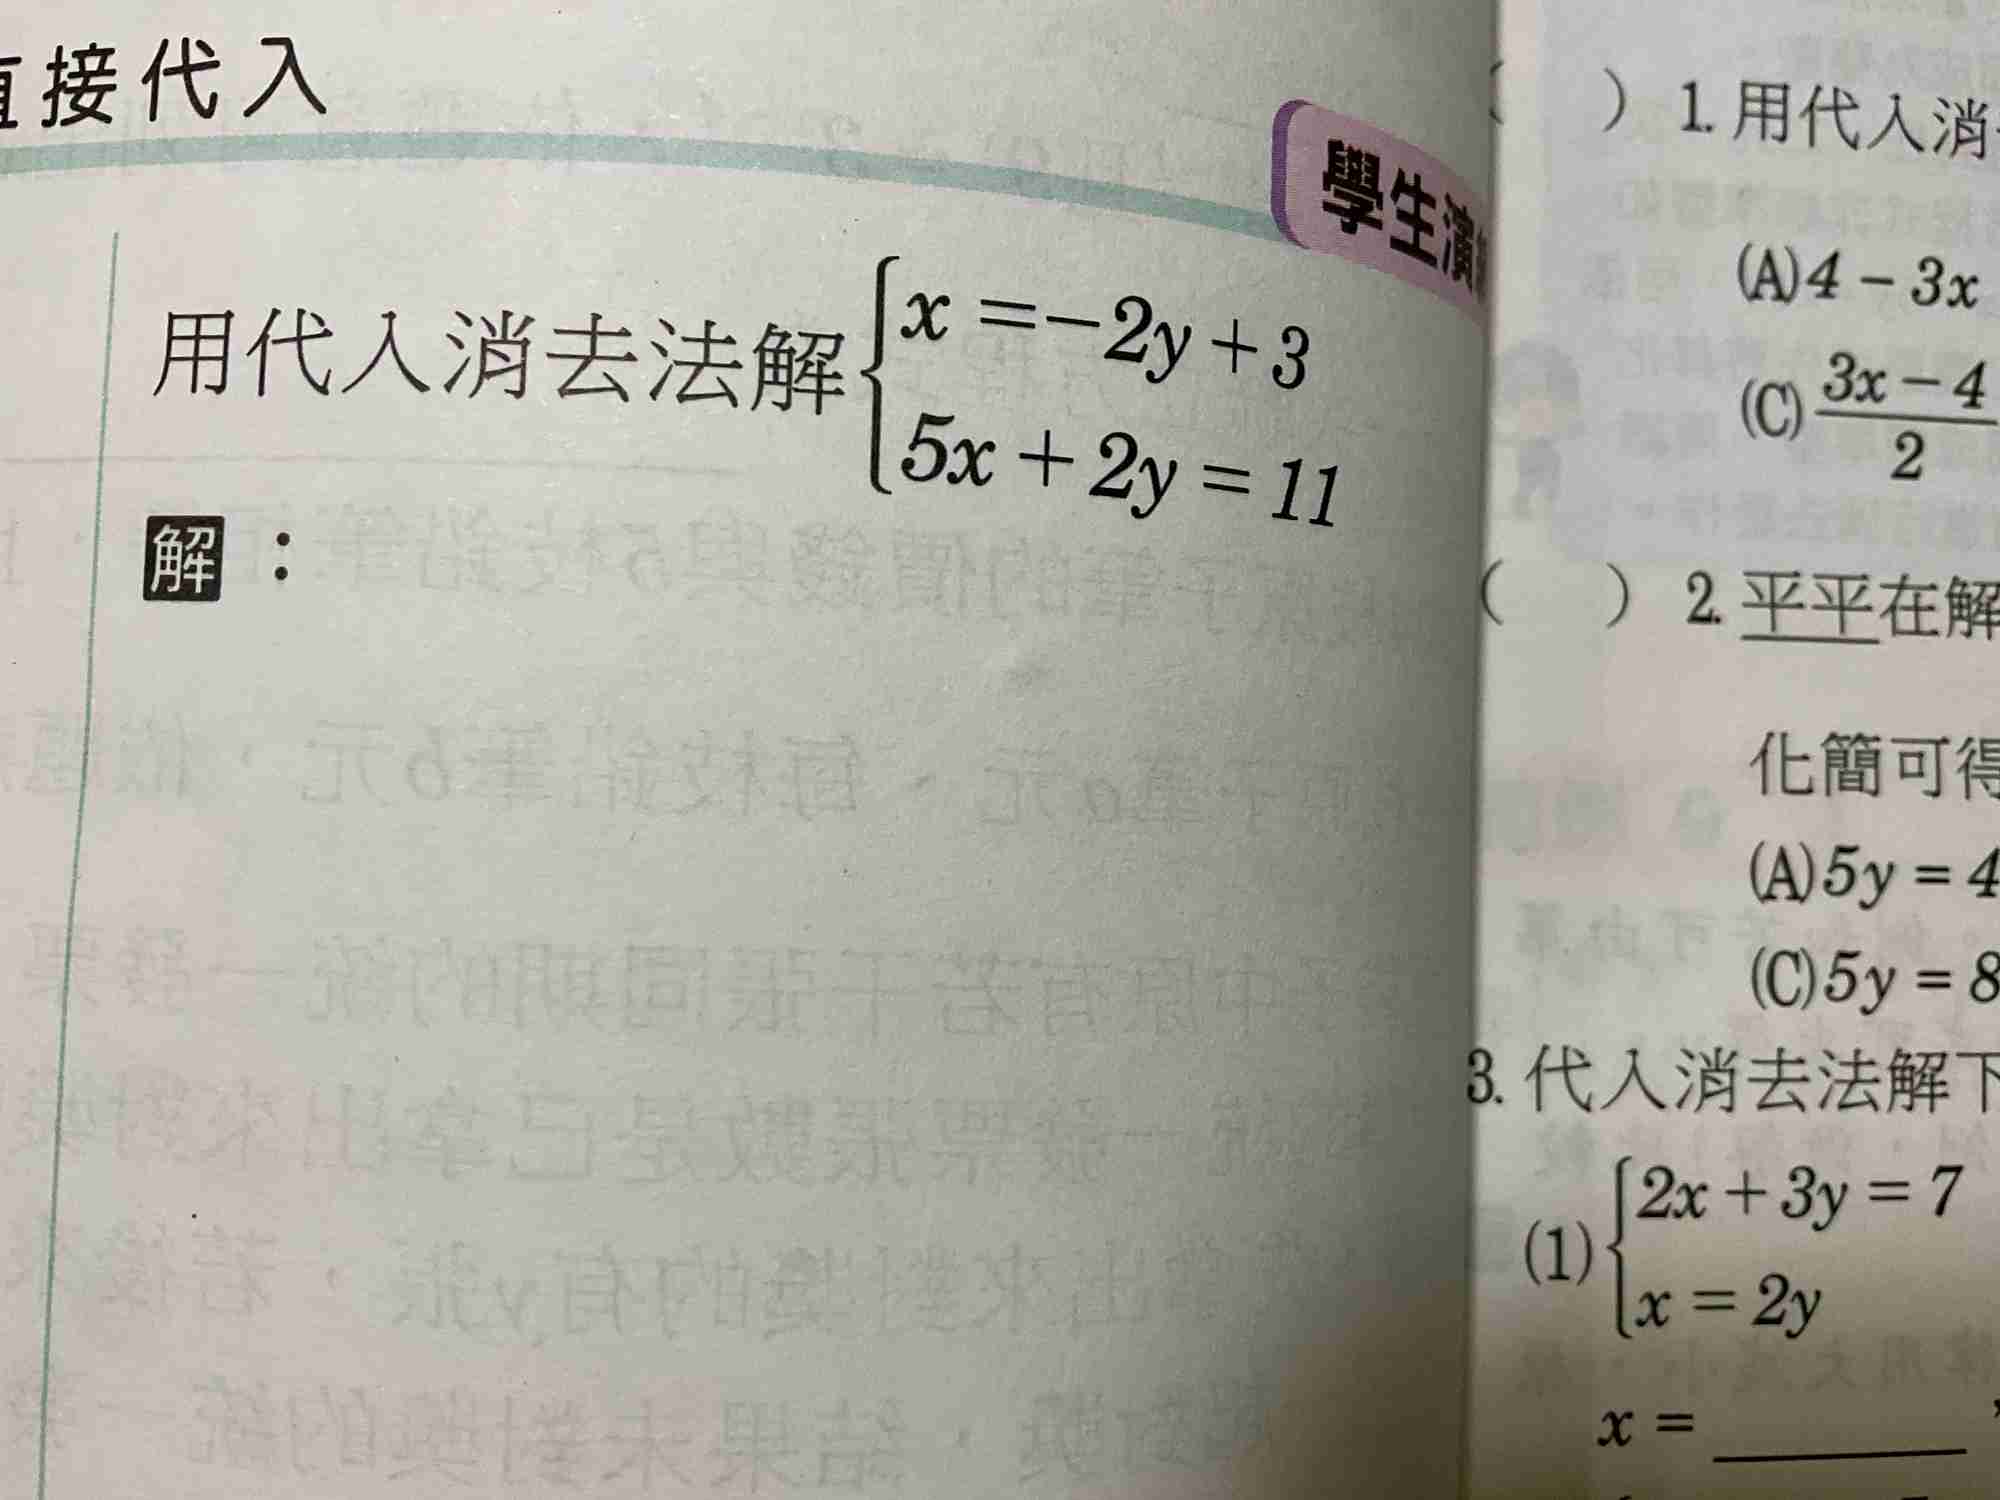 直接代入
學生演
用代入消去法解
x =－2y＋3
5x＋2y = 11
解：
（　）1. 用代入消
(A)4－3x
(C)3x－4/2
（　）2. 平平在解
化簡可得
(A)5y = 4
(C)5y = 8
3. 代入消去法解下
(1)
2x＋3y = 7
x = 2y
x = ______ ，